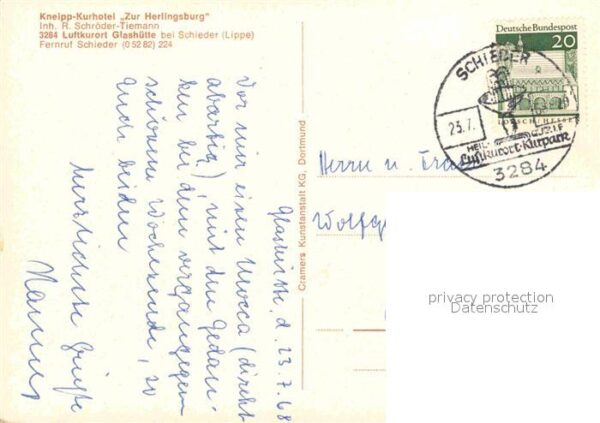 Kneipp-Kurhotel „Zur Herlingsburg"
Inh. R. Schröder-Tiemann
3284 Luftkurort Glashütte bei Schieder (Lippe)
Fernruf Schieder (0 52 82) 224
Glashütte, d. 23.7.68
Vor mir einen Mocca (direkt
abartig) mit den Gedan-
ken bei dem vergangenen
schönen Wochenende, so
Euch beiden
herzlichste Grüße
Cramers Kunstanstalt KG, Dortmund
Deutsche Bundespost
20
LORSCH/HESSEN
SCHIEDER
23.7.
HEIL-
QUELLE
Luftkurort-Kurpark
3284
Herrn u. Frau
Wolfg
privacy protection
Datenschutz